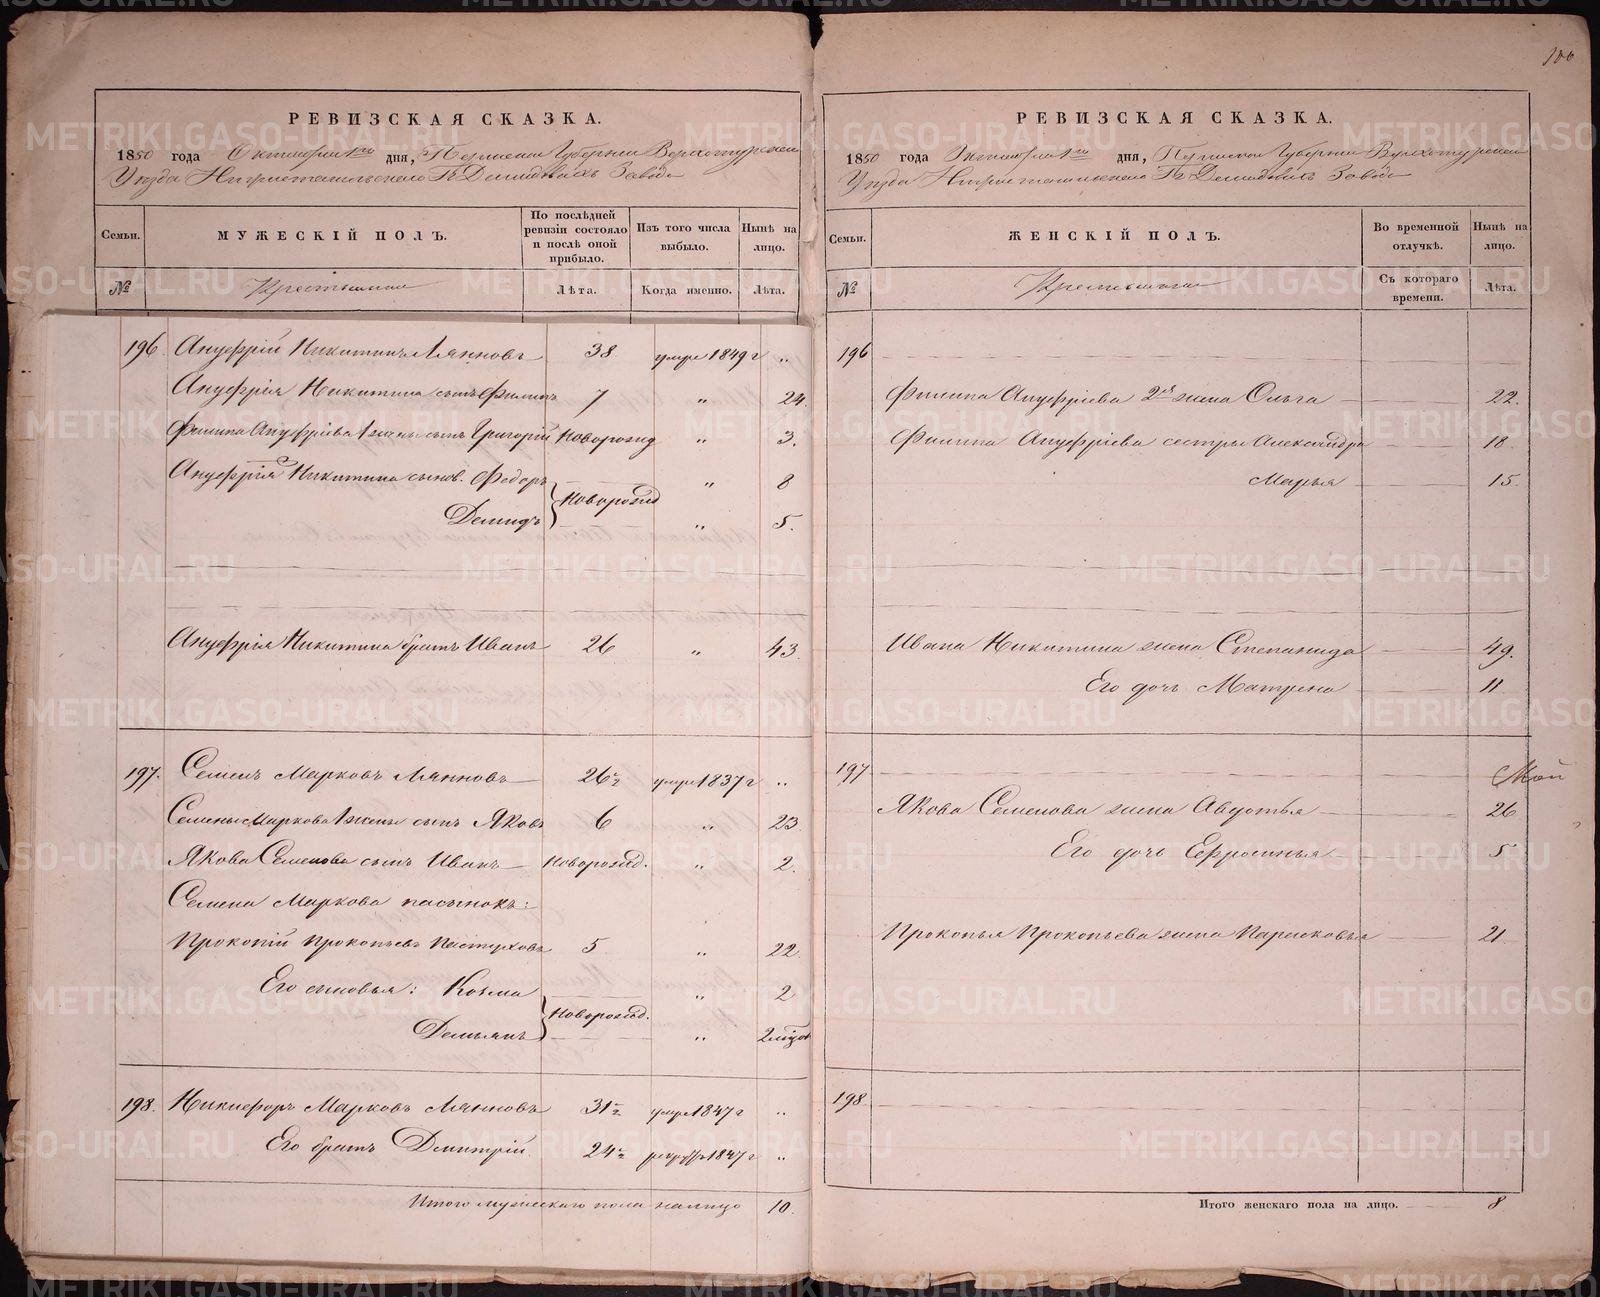 100
РЕВИЗСКАЯ СКАЗКА.
1850 года Октября 1го дня, Пермской Губернiи Верхотурскаго
Уезда Нижнетагильскаго Гг. Демидовыхъ Завода
Семьи. МУЖЕСКIЙ ПОЛЪ. По послѣдней ревизiи состояло и послѣ оной прибыло. Изъ того числа выбыло. Нынѣ на лицо.
№ Крестьяне Лѣта. Когда именно. Лѣта.
196 Ануфрiй Никитинъ Ляпновъ 38 умре 1849 г „
Ануфрiя Никитина сынъ Филипъ 7 „ 24.
Филипа Ануфрiева 1 жены сынъ Григорiй новорожд „ 3.
Ануфрiя Никитина сынов. Федоръ новорожд „ 8
Демидъ „ 5.
Ануфрiя Никитина братъ Иванъ 26 „ 43
197. Семенъ Марковъ Ляпновъ 26½ умре 1837 г „
Семена Маркова 1 жены сынъ Яковъ 6 „ 23.
Якова Семенова сынъ Иванъ новорожд. „ 2.
Семена Маркова пасынокъ:
Прокопiй Прокопьевъ Пастуховъ 5 „ 22.
Его сыновья: Козма новорожд. „ 2
Демьянъ „ 2
198. Никифоръ Марковъ Ляпновъ 31½ умре 1847 г „
Его братъ Дмитрiй 24½ рекрутъ 1847 г „
Итого мужескаго пола налицо 10.
РЕВИЗСКАЯ СКАЗКА.
1850 года Октября 1го дня, Пермской Губернiи Верхотурскаго
Уезда Нижнетагильскаго Гг. Демидовыхъ Завода
Семьи. ЖЕНСКIЙ ПОЛЪ. Во временной отлучкѣ. Нынѣ на лицо.
№ Крестьяне Съ котораго времени. Лѣта.
196
Филипа Ануфрiева 2я жена Ольга 22.
Филипа Ануфрiева сестры Александра 18.
Марья 15.
Ивана Никитина жена Степанида 49.
Его дочь Матрена 11
197
Якова Семенова жена Авдотья 26
Его дочь Ефросинья 5
Прокопья Прокопьева жена Парасковья 21
198
Итого женскаго пола на лицо. 8
METRIKI.GASO-URAL.RU